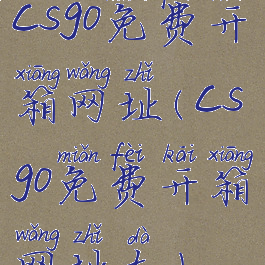 CS90免费开
xiāng wǎng zhǐ
箱网址(CS
miǎn fèi kāi xiāng
90免费开箱
wǎng zhǐ dà
网址大